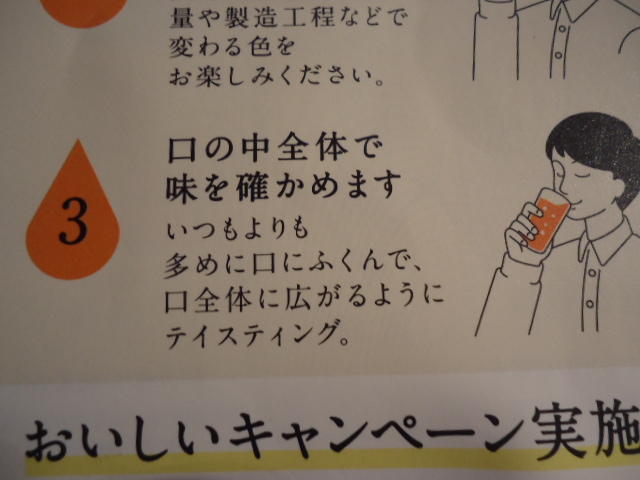 量や製造工程などで
変わる色を
お楽しみください。
3
口の中全体で
味を確かめます
いつもよりも
多めに口にふくんで、
口全体に広がるように
テイスティング。
おいしいキャンペーン実施